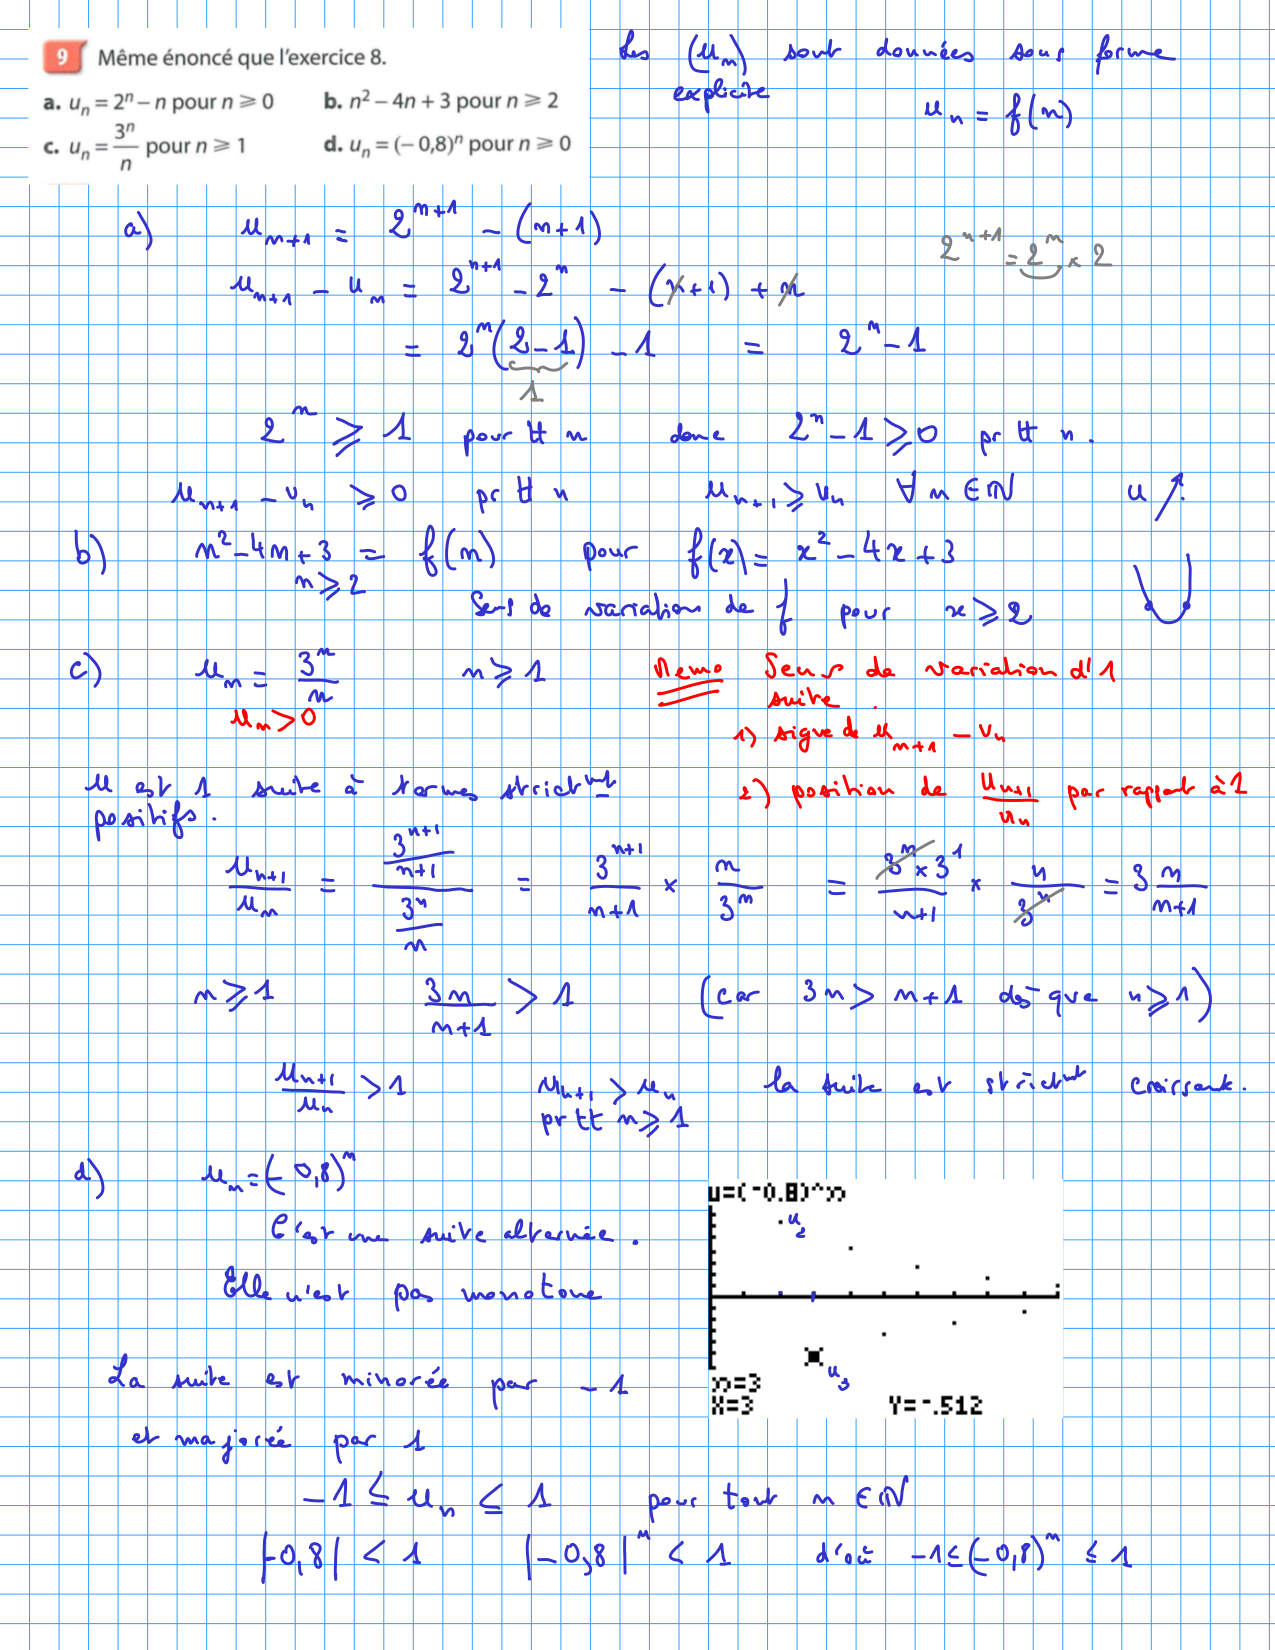 9 Même énoncé que l'exercice 8.
a. uₙ = 2ⁿ – n pour n ⩾ 0
b. n² – 4n + 3 pour n ⩾ 2
c. uₙ = 3ⁿ/n pour n ⩾ 1
d. uₙ = (– 0,8)ⁿ pour n ⩾ 0
Les (uₙ) sont données sous forme
explicite
uₙ = f(n)
a) uₙ₊₁ = 2ⁿ⁺¹ – (n+1)
2ⁿ⁺¹ = 2ⁿ × 2
uₙ₊₁ – uₙ = 2ⁿ⁺¹ – 2ⁿ – (n+1) + n
= 2ⁿ(2–1) – 1 = 2ⁿ – 1
1
2ⁿ ⩾ 1 pour tt n donc 2ⁿ – 1 ⩾ 0 pr tt n.
uₙ₊₁ – uₙ ⩾ 0 pr tt n uₙ₊₁ ⩾ uₙ ∀ n ∈ ℕ u ↗
b) n² – 4n + 3 = f(n) pour f(x) = x² – 4x + 3
n ⩾ 2
Sens de variation de f pour x ⩾ 2
c) uₙ = 3ⁿ/n n ⩾ 1
uₙ > 0
Memo Sens de variation d'1
suite.
1) signe de uₙ₊₁ – uₙ
2) position de uₙ₊₁/uₙ par rapport à 1
u est 1 suite à termes strictmt
positifs.
uₙ₊₁/uₙ = (3ⁿ⁺¹/(n+1))/(3ⁿ/n) = 3ⁿ⁺¹/(n+1) × n/3ⁿ = (3ⁿ × 3¹)/(n+1) × n/3ⁿ = 3 n/(n+1)
n ⩾ 1 3n/(n+1) > 1 (car 3n > n+1 dès que n ⩾ 1)
uₙ₊₁/uₙ > 1 uₙ₊₁ > uₙ la suite est strictmt croissante.
pr tt n ⩾ 1
d) uₙ = (– 0,8)ⁿ
C'est une suite alternée.
Elle n'est pas monotone
u=(-0.8)^n
u₂
u₃
n=3
X=3 Y=-.512
La suite est minorée par – 1
et majorée par 1
– 1 ⩽ uₙ ⩽ 1 pour tout n ∈ ℕ
|–0,8| < 1 |–0,8|ⁿ < 1 d'où –1 ⩽ (–0,8)ⁿ ⩽ 1